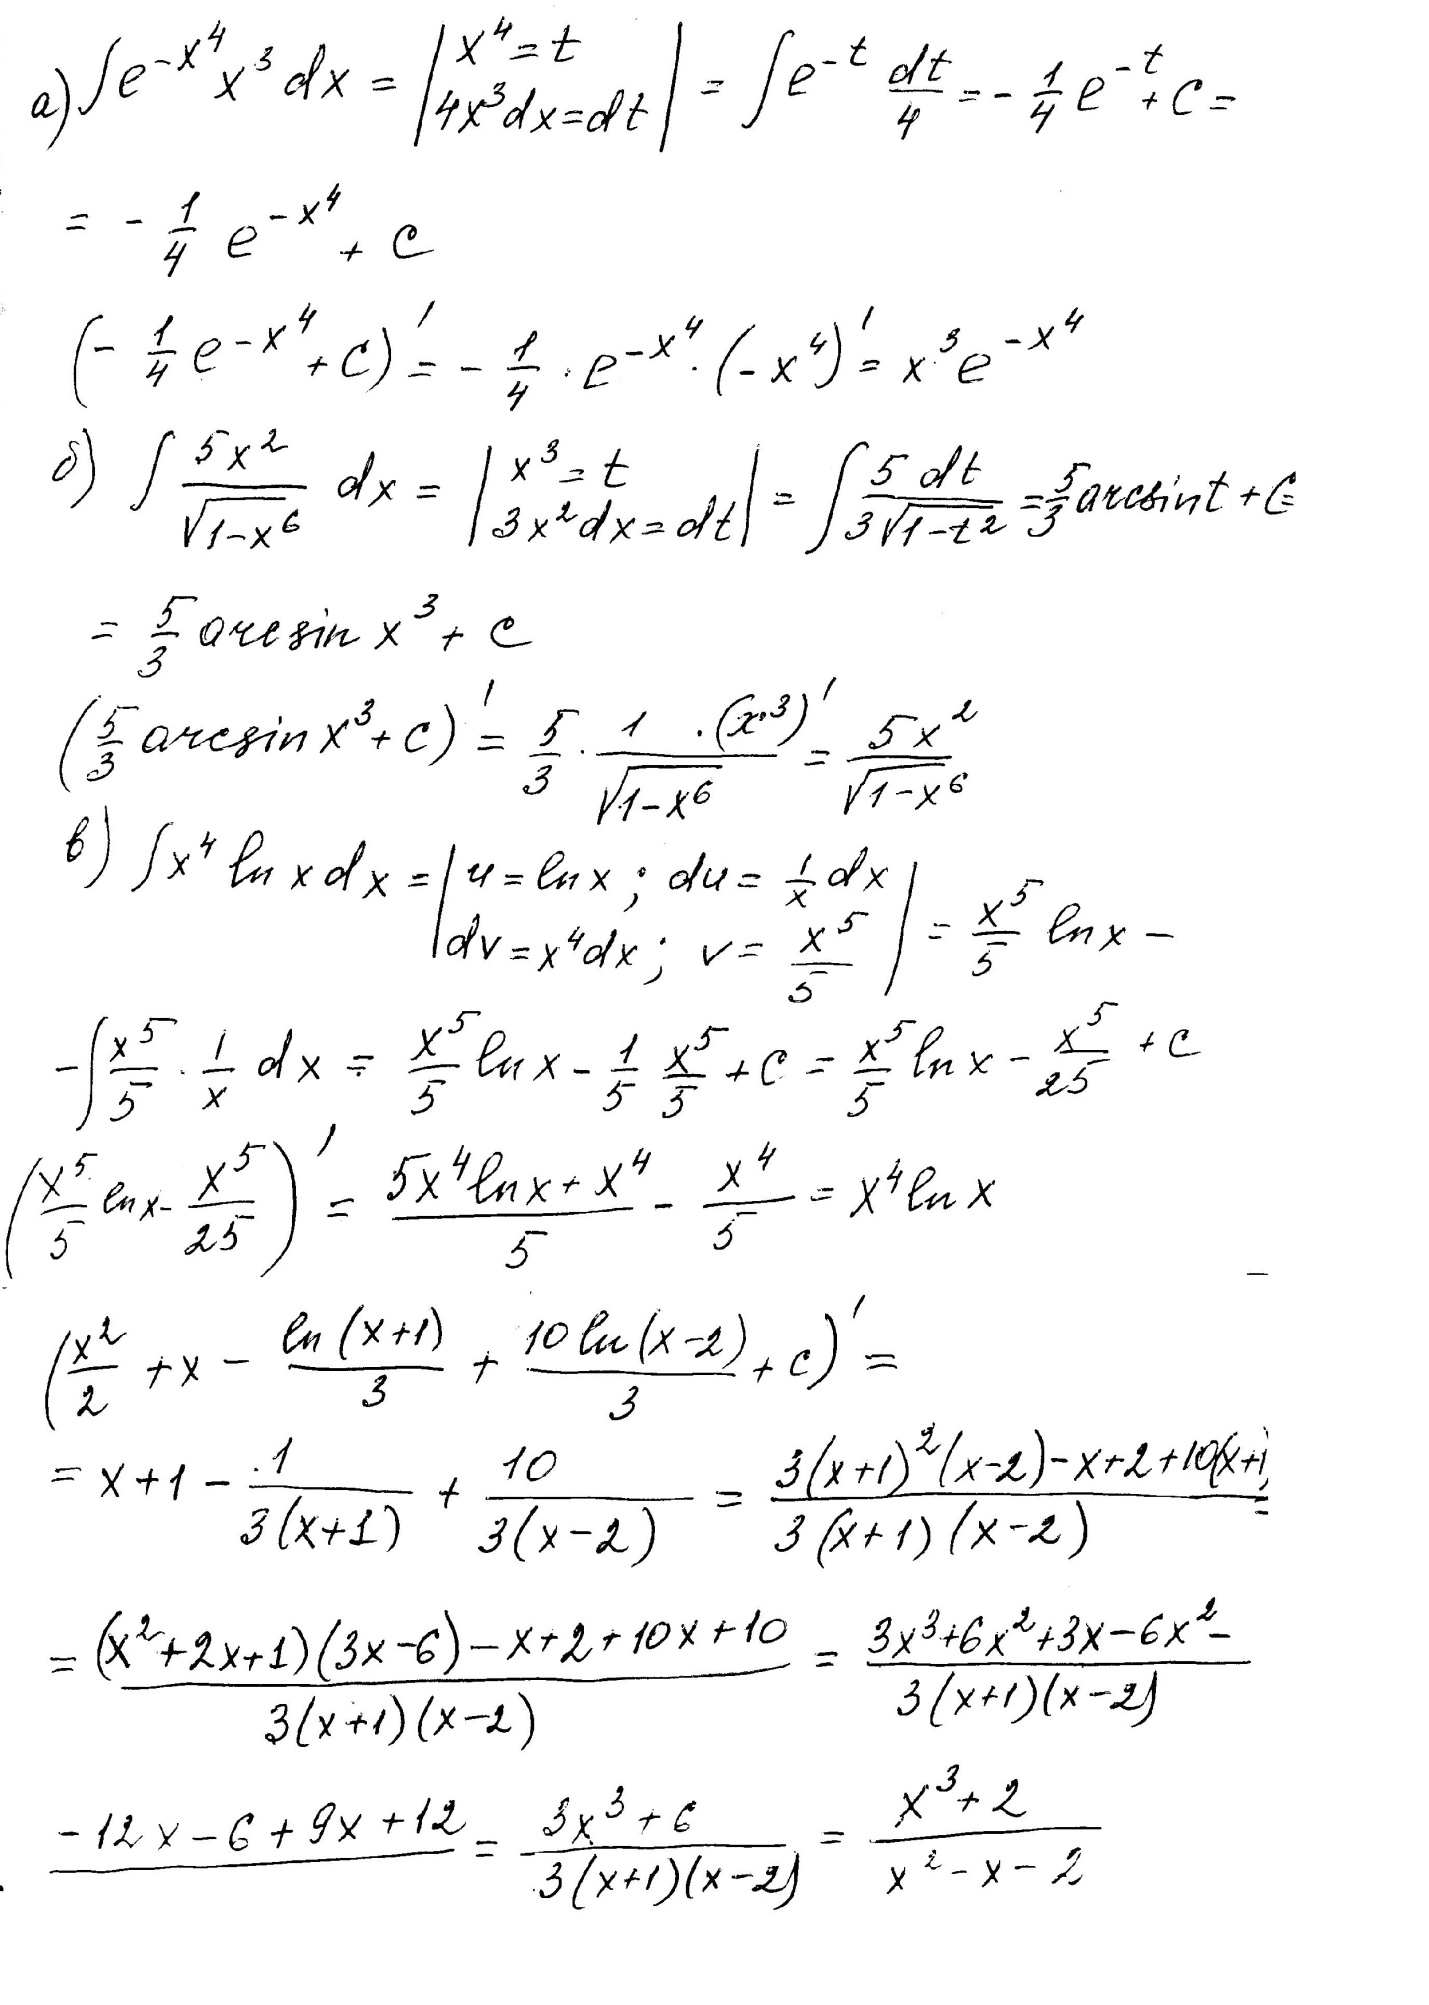 а) ∫e^{-x^4} x^3 dx = | x^4 = t ; 4x^3dx = dt | = ∫e^{-t} dt/4 = - 1/4 e^{-t} + C =
= - 1/4 e^{-x^4} + C
(- 1/4 e^{-x^4} + C)' = - 1/4 · e^{-x^4} · (-x^4)' = x^3 e^{-x^4}
б) ∫ 5x^2/√(1-x^6) dx = | x^3 = t ; 3x^2dx = dt | = ∫ 5 dt/(3√(1-t^2)) = 5/3 arcsin t + C =
= 5/3 arcsin x^3 + C
(5/3 arcsin x^3 + C)' = 5/3 · 1/√(1-x^6) · (x^3)' = 5x^2/√(1-x^6)
в) ∫x^4 ln x dx = | u = ln x ; du = 1/x dx ; dv = x^4dx ; v = x^5/5 | = x^5/5 ln x -
- ∫ x^5/5 · 1/x dx = x^5/5 ln x - 1/5 x^5/5 + C = x^5/5 ln x - x^5/25 + C
(x^5/5 ln x - x^5/25)' = (5x^4 ln x + x^4)/5 - x^4/5 = x^4 ln x
(x^2/2 + x - ln(x+1)/3 + 10 ln(x-2)/3 + C)' =
= x + 1 - 1/(3(x+1)) + 10/(3(x-2)) = (3(x+1)^2(x-2) - x + 2 + 10(x+1))/(3(x+1)(x-2)) =
= ((x^2+2x+1)(3x-6) - x + 2 + 10x + 10)/(3(x+1)(x-2)) = (3x^3+6x^2+3x-6x^2-)/(3(x+1)(x-2))
-12x - 6 + 9x + 12 = (3x^3+6)/(3(x+1)(x-2)) = (x^3+2)/(x^2-x-2)